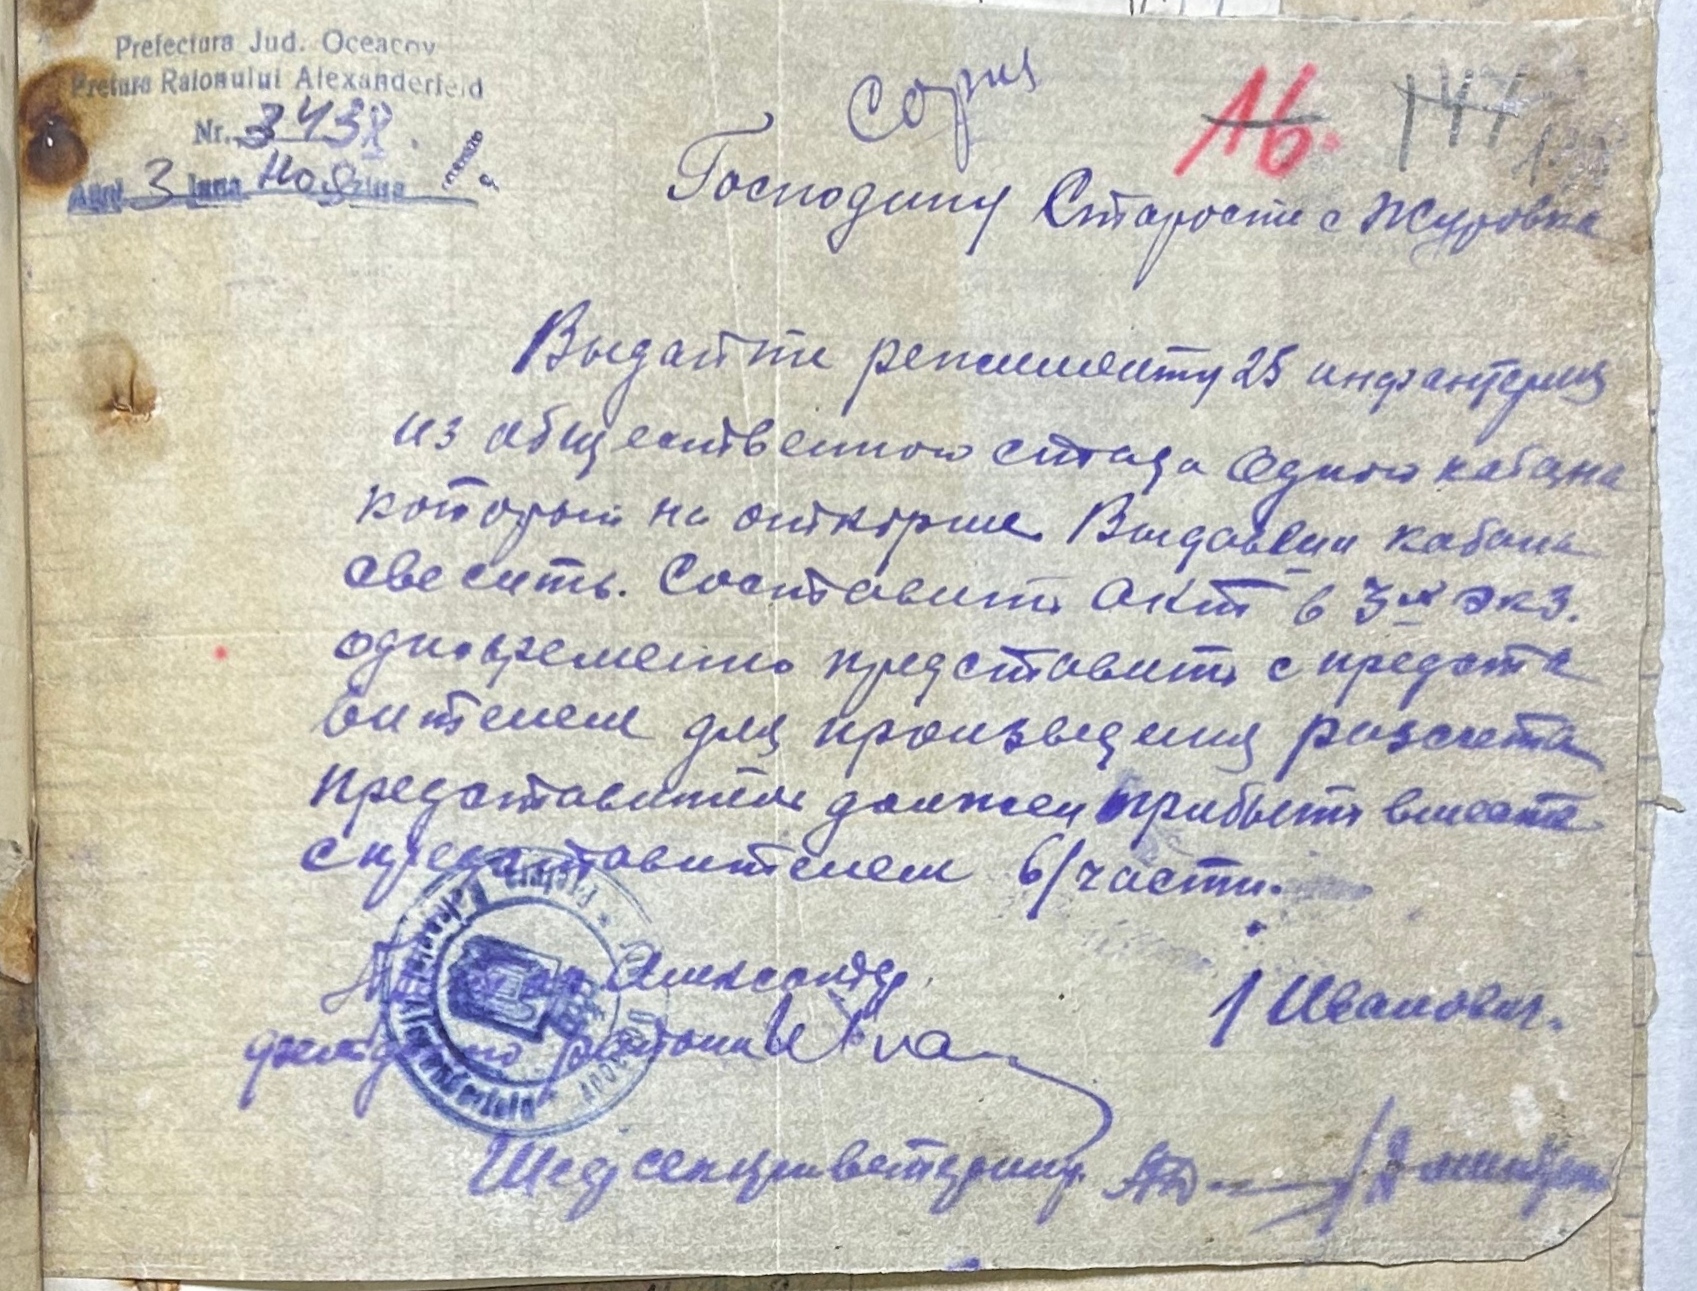 Prefectura Jud. Oceacov
Pretura Raionului Alexanderfeld
Nr. 3438.
Anul 3 luna Но ziua 1.
Copия
16. 147
Господину Старости с Журовка
Выдайти режименту 25 инфантерия
из общественого стада одного кабана
который на откорме. Выдавши кабана
свесить. Составить акт в 3х экз.
одновременно представить с предста
вителем для произведения разсчета
представитель должен прибыть вместе
с представителем в/части.
Александр. / Иванович.
района
Шеф секции ветеринар.